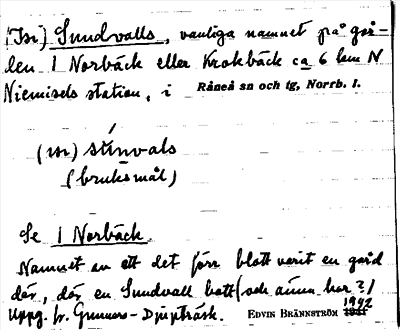 (Isr) Sundvalls, vanliga namnet på går-
den 1 Norbäck eller Krokbäck ca 6 km N
Niemisels station, i Råneå sn och tg, Norrb. l.
(ısı) stínvals
(bruksmål)
Se 1 Norbäck.
Namnet av att det förr blott varit en gård
där, där en Sundvall bott (och ännu bor?)
Uppg. fr. Gunnars-Djupträsk. EDVIN BRÄNNSTRÖM 1942